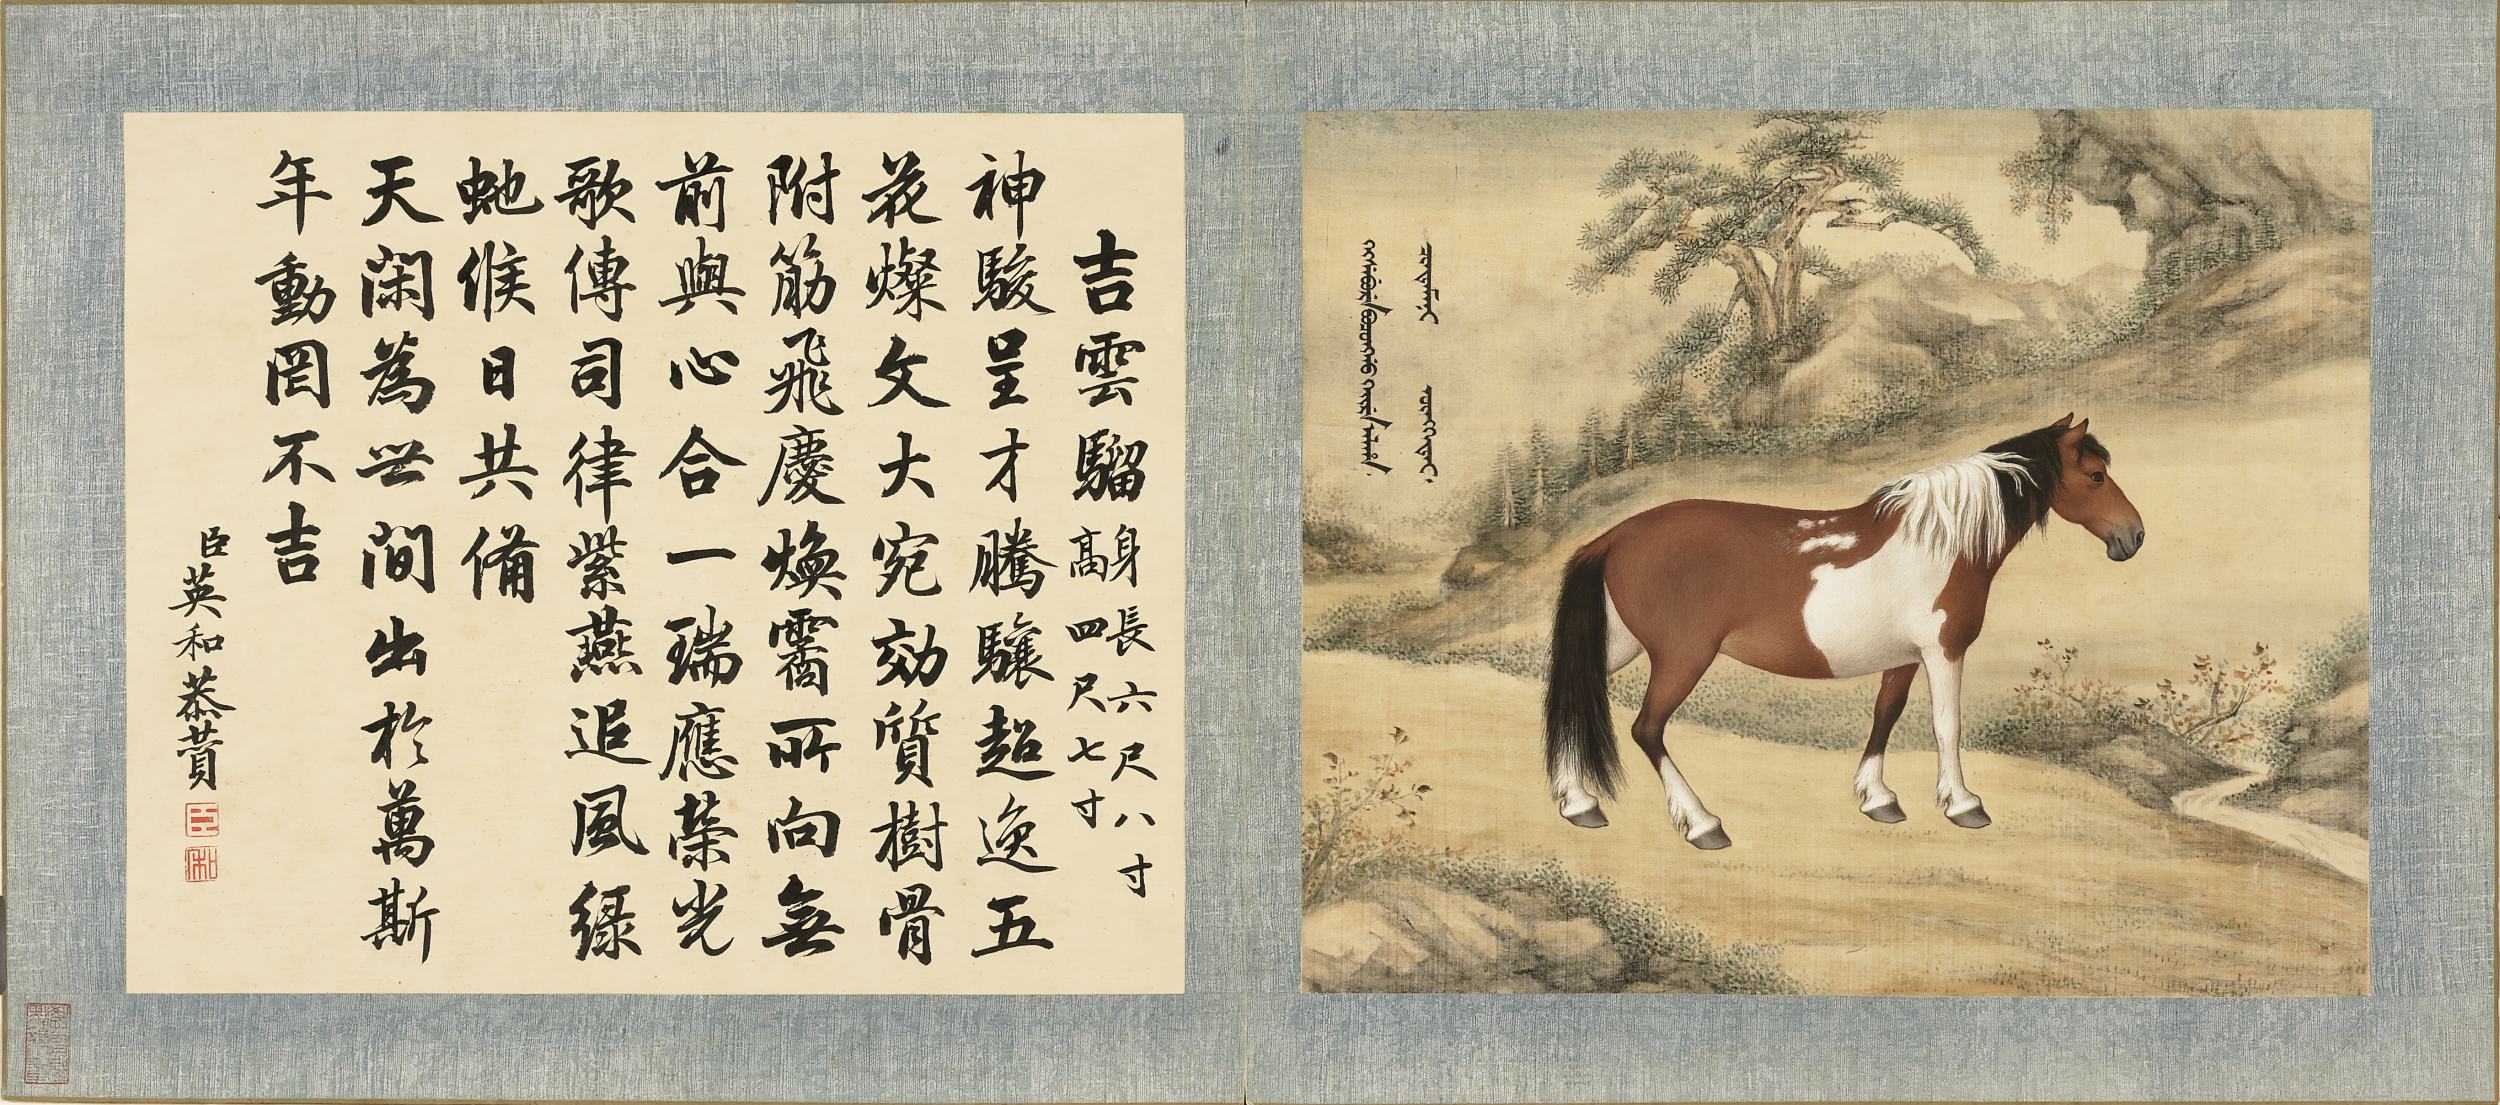 吉雲騮
身長六尺八寸
高四尺七寸
神駿呈才騰驤超逸五
花燦文大宛効質樹骨
附筋飛慶煥霱所向無
前與心合一瑞應榮光
歌傳司律紫燕追風綠
虵候日共備
天閑為世間出於萬斯
年動罔不吉
臣英和恭贊
臣
和